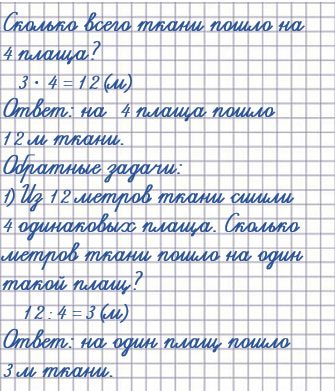 Сколько всего ткани пошло на
4 плаща?
3 · 4 = 12 (м)
Ответ: на 4 плаща пошло
12 м ткани.
Обратные задачи:
1) Из 12 метров ткани сшили
4 одинаковых плаща. Сколько
метров ткани пошло на один
такой плащ?
12 : 4 = 3 (м)
Ответ: на один плащ пошло
3 м ткани.